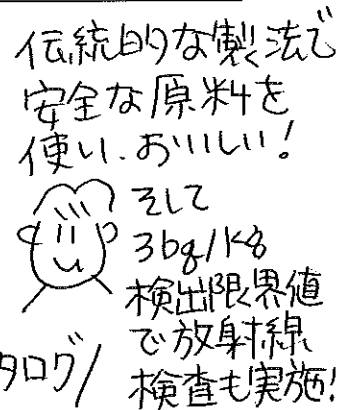 伝統的な製法で
安全な原料を
使い、おいしい!
そして
3bg/kg
検出限界値
で放射線
検査も実施!
タログ/